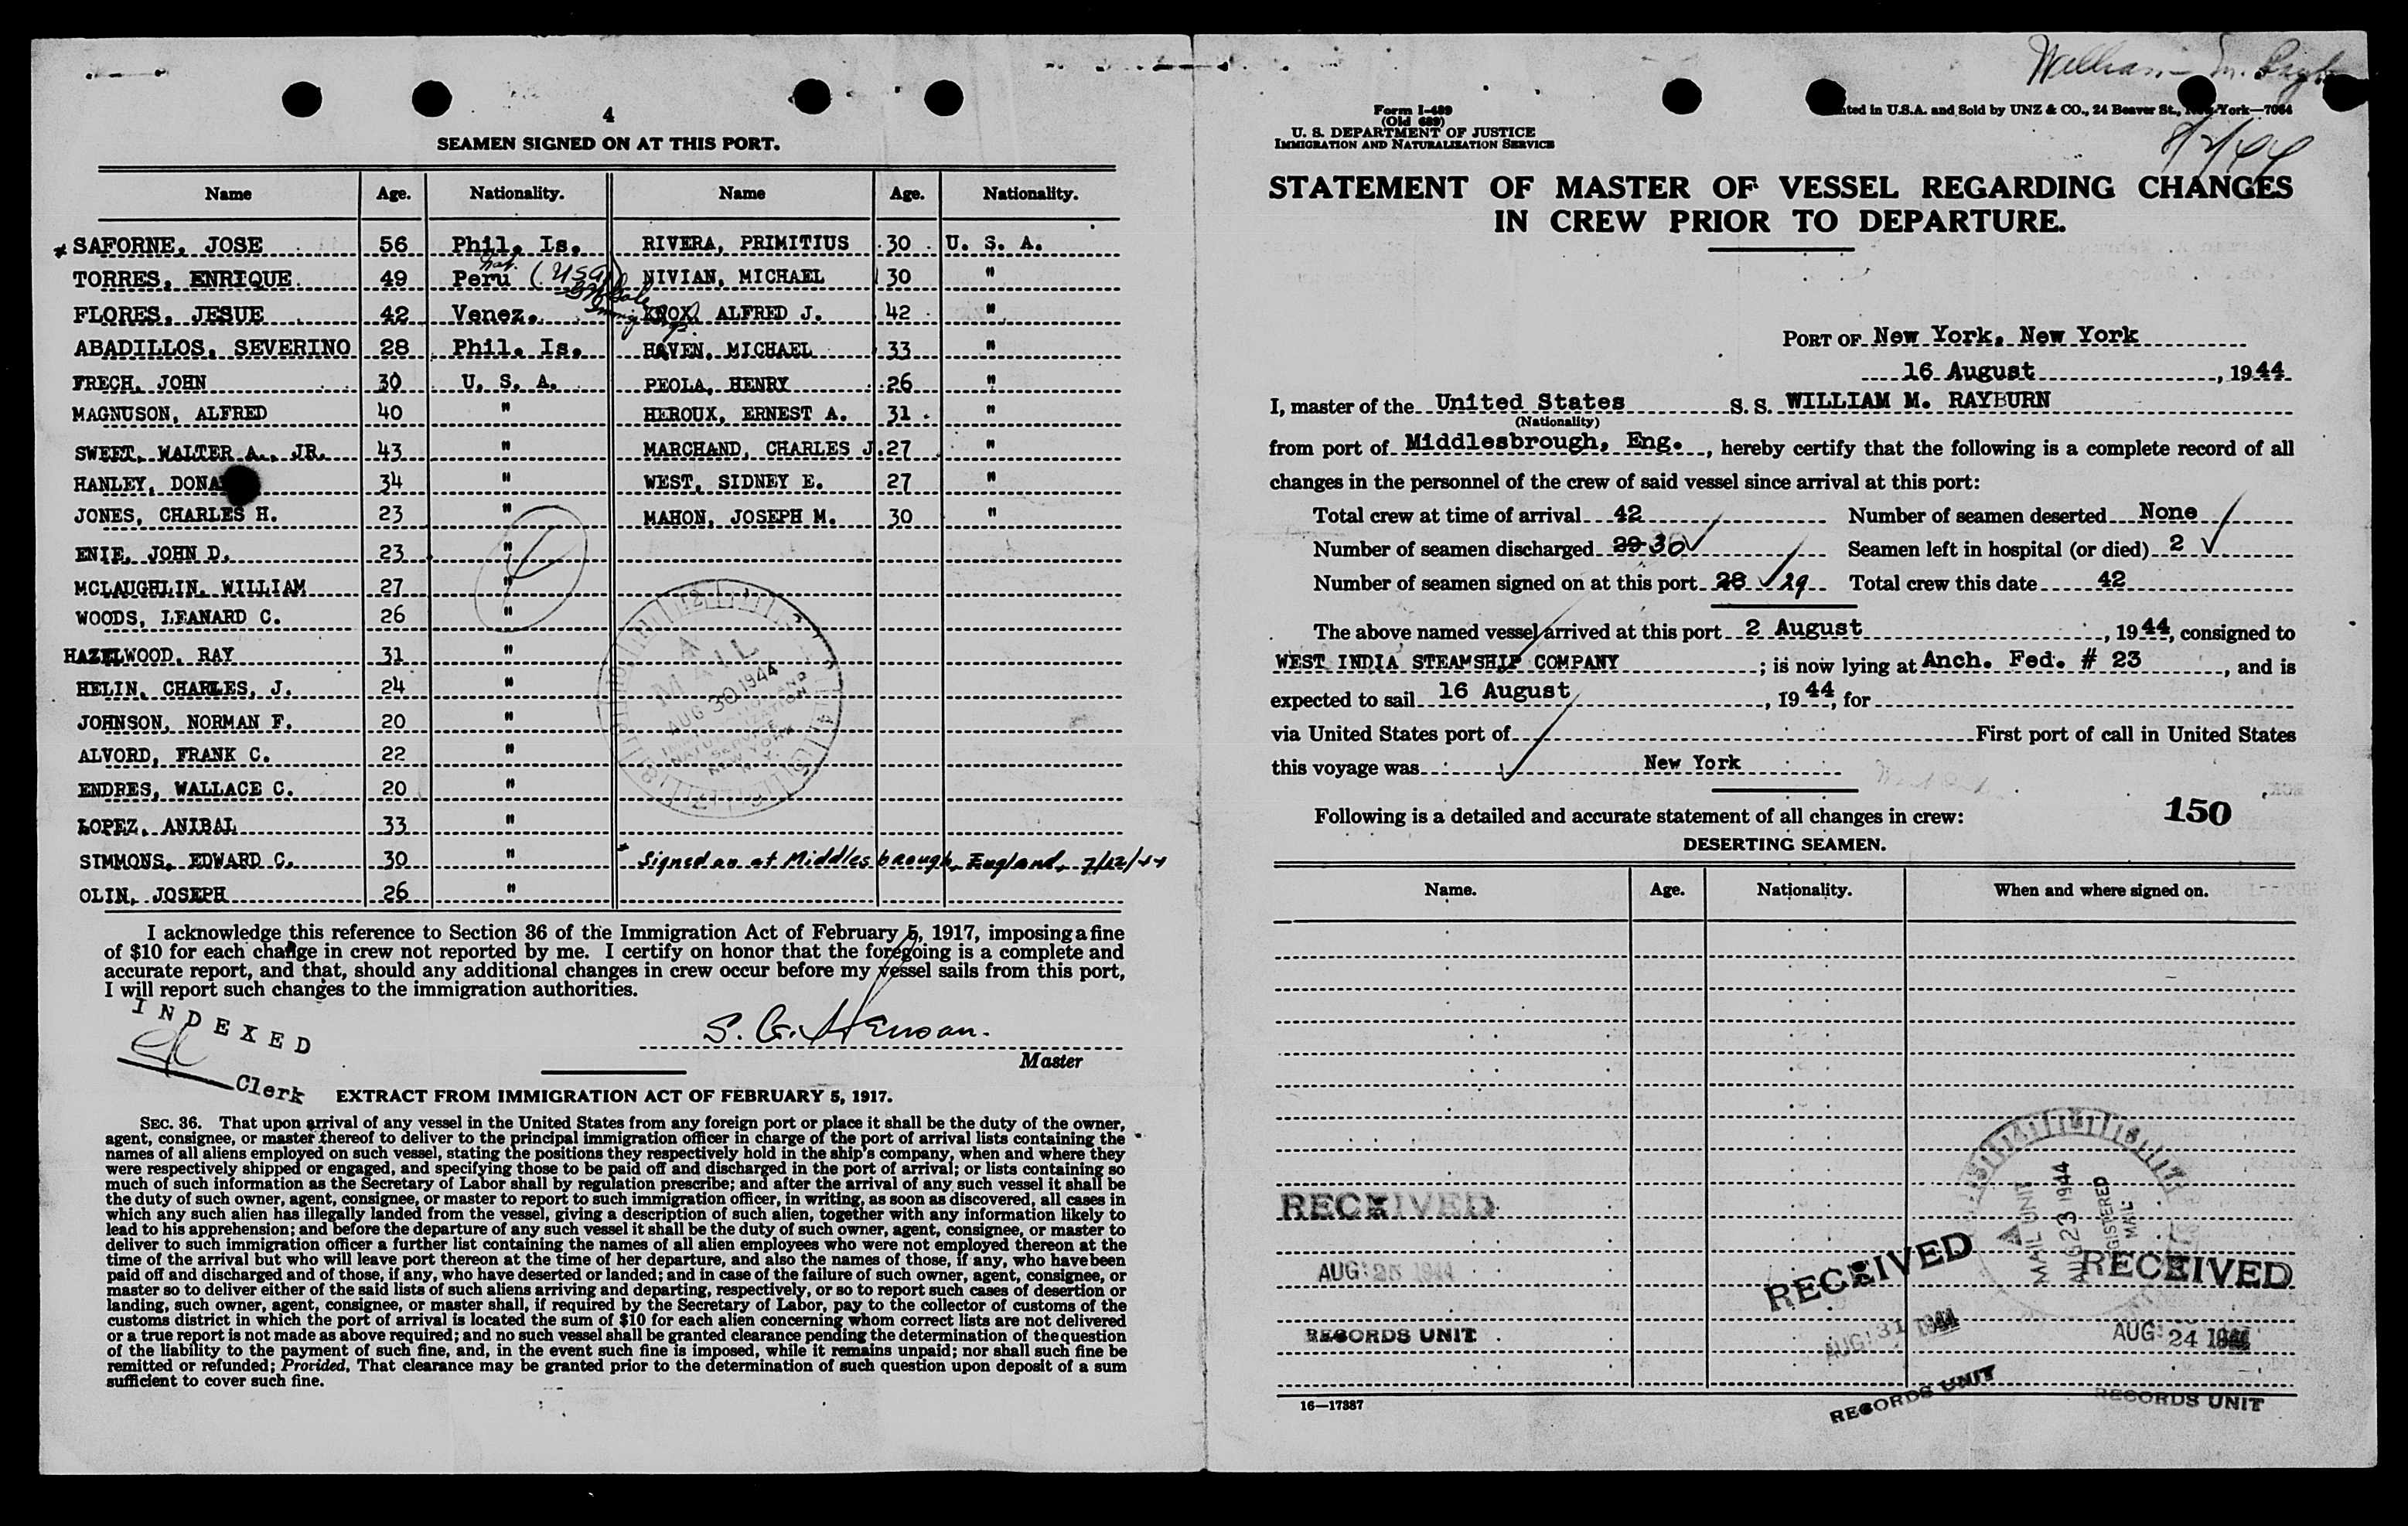 4
SEAMEN SIGNED ON AT THIS PORT.
Name Age. Nationality. Name Age. Nationality.
* SAFORNE, JOSE 56 Phil. Is. RIVERA, PRIMITIUS 30 U. S. A.
TORRES, ENRIQUE 49 Peru (USA) NIVIAN, MICHAEL 30 "
FLORES, JESUE 42 Venez. KNOX, ALFRED J. 42 "
ABADILLOS, SEVERINO 28 Phil. Is. HAVEN, MICHAEL 33 "
FRECH, JOHN 30 U. S. A. PEOLA, HENRY 26 "
MAGNUSON, ALFRED 40 " HEROUX, ERNEST A. 31 "
SWEET, WALTER A., JR. 43 " MARCHAND, CHARLES J. 27 "
HANLEY, DONA 34 " WEST, SIDNEY E. 27 "
JONES, CHARLES H. 23 " MAHON, JOSEPH M. 30 "
ENIE, JOHN D. 23 "
MCLAUGHLIN, WILLIAM 27 "
WOODS, LEANARD C. 26 "
HAZELWOOD, RAY 31 "
HELIN, CHARLES, J. 24 "
JOHNSON, NORMAN F. 20 "
ALVORD, FRANK C. 22 "
ENDRES, WALLACE C. 20 "
LOPEZ, ANIBAL 33 "
SIMMONS, EDWARD C. 30 " * Signed on at Middlesbrough, England, 7/12/44
OLIN, JOSEPH 26 "
A
MAIL
AUG 30 1944
IMMIGRATION AND
NATURALIZATION
SERVICE
NEW YORK
N. Y.
I acknowledge this reference to Section 36 of the Immigration Act of February 5, 1917, imposing a fine
of $10 for each change in crew not reported by me. I certify on honor that the foregoing is a complete and
accurate report, and that, should any additional changes in crew occur before my vessel sails from this port,
I will report such changes to the immigration authorities.
INDEXED
Clerk
S. G. Stenson.
Master
EXTRACT FROM IMMIGRATION ACT OF FEBRUARY 5, 1917.
SEC. 36. That upon arrival of any vessel in the United States from any foreign port or place it shall be the duty of the owner,
agent, consignee, or master thereof to deliver to the principal immigration officer in charge of the port of arrival lists containing the
names of all aliens employed on such vessel, stating the positions they respectively hold in the ship's company, when and where they
were respectively shipped or engaged, and specifying those to be paid off and discharged in the port of arrival; or lists containing so
much of such information as the Secretary of Labor shall by regulation prescribe; and after the arrival of any such vessel it shall be
the duty of such owner, agent, consignee, or master to report to such immigration officer, in writing, as soon as discovered, all cases in
which any such alien has illegally landed from the vessel, giving a description of such alien, together with any information likely to
lead to his apprehension; and before the departure of any such vessel it shall be the duty of such owner, agent, consignee, or master to
deliver to such immigration officer a further list containing the names of all alien employees who were not employed thereon at the
time of the arrival but who will leave port thereon at the time of her departure, and also the names of those, if any, who have been
paid off and discharged and of those, if any, who have deserted or landed; and in case of the failure of such owner, agent, consignee, or
master so to deliver either of the said lists of such aliens arriving and departing, respectively, or so to report such cases of desertion or
landing, such owner, agent, consignee, or master shall, if required by the Secretary of Labor, pay to the collector of customs of the
customs district in which the port of arrival is located the sum of $10 for each alien concerning whom correct lists are not delivered
or a true report is not made as above required; and no such vessel shall be granted clearance pending the determination of the question
of the liability to the payment of such fine, and, in the event such fine is imposed, while it remains unpaid; nor shall such fine be
remitted or refunded; Provided, That clearance may be granted prior to the determination of such question upon deposit of a sum
sufficient to cover such fine.
William M.
8/2/44
Form I-489
(Old 689)
U. S. DEPARTMENT OF JUSTICE
IMMIGRATION AND NATURALIZATION SERVICE
nted in U.S.A. and Sold by UNZ & CO., 24 Beaver St., New York—7064
STATEMENT OF MASTER OF VESSEL REGARDING CHANGES
IN CREW PRIOR TO DEPARTURE.
PORT OF New York, New York
16 August, 1944
I, master of the United States S. S. WILLIAM M. RAYBURN
(Nationality)
from port of Middlesbrough, Eng., hereby certify that the following is a complete record of all
changes in the personnel of the crew of said vessel since arrival at this port:
Total crew at time of arrival 42 Number of seamen deserted None
Number of seamen discharged 29 30 Seamen left in hospital (or died) 2
Number of seamen signed on at this port 28 29 Total crew this date 42
The above named vessel arrived at this port 2 August, 1944, consigned to
WEST INDIA STEAMSHIP COMPANY; is now lying at Anch. Fed. # 23, and is
expected to sail 16 August, 1944, for
via United States port of First port of call in United States
this voyage was New York
150
Following is a detailed and accurate statement of all changes in crew:
DESERTING SEAMEN.
Name. Age. Nationality. When and where signed on.
RECEIVED
AUG 25 1944
RECORDS UNIT
RECEIVED
AUG 31 1944
RECORDS UNIT
A
MAIL UNIT
AUG 23 1944
REGISTERED
MAIL
RECEIVED
AUG 24 1944
RECORDS UNIT
16—17387